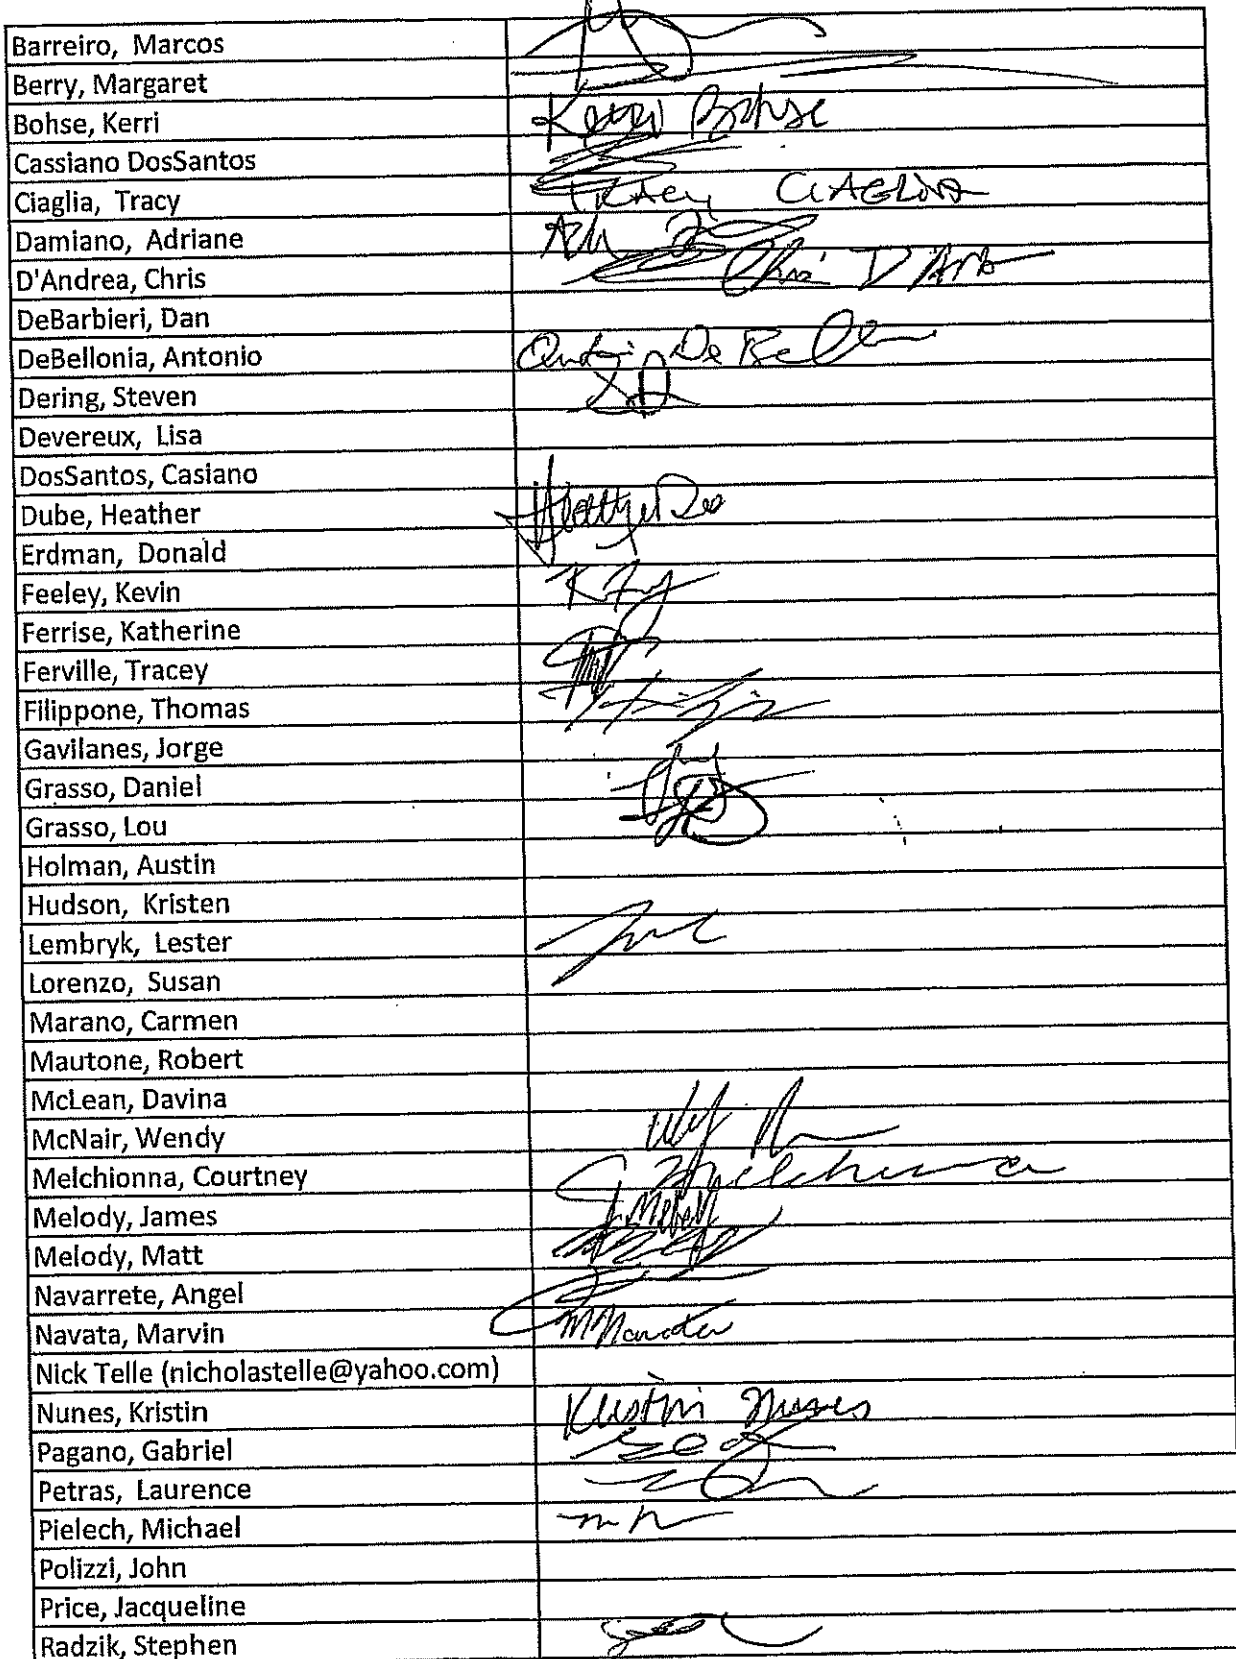 Barreiro, Marcos
Berry, Margaret
Bohse, Kerri Kerri Bohse
Cassiano DosSantos
Ciaglia, Tracy Tracy CIAGLIA
Damiano, Adriane
D'Andrea, Chris Chris
DeBarbieri, Dan
DeBellonia, Antonio
Dering, Steven SD
Devereux, Lisa
DosSantos, Casiano
Dube, Heather
Erdman, Donald
Feeley, Kevin
Ferrise, Katherine
Ferville, Tracey
Filippone, Thomas
Gavilanes, Jorge
Grasso, Daniel
Grasso, Lou
Holman, Austin
Hudson, Kristen
Lembryk, Lester
Lorenzo, Susan
Marano, Carmen
Mautone, Robert
McLean, Davina
McNair, Wendy
Melchionna, Courtney
Melody, James J. Melody
Melody, Matt
Navarrete, Angel
Navata, Marvin
Nick Telle (nicholastelle@yahoo.com)
Nunes, Kristin Kristin Nunes
Pagano, Gabriel
Petras, Laurence
Pielech, Michael
Polizzi, John
Price, Jacqueline
Radzik, Stephen